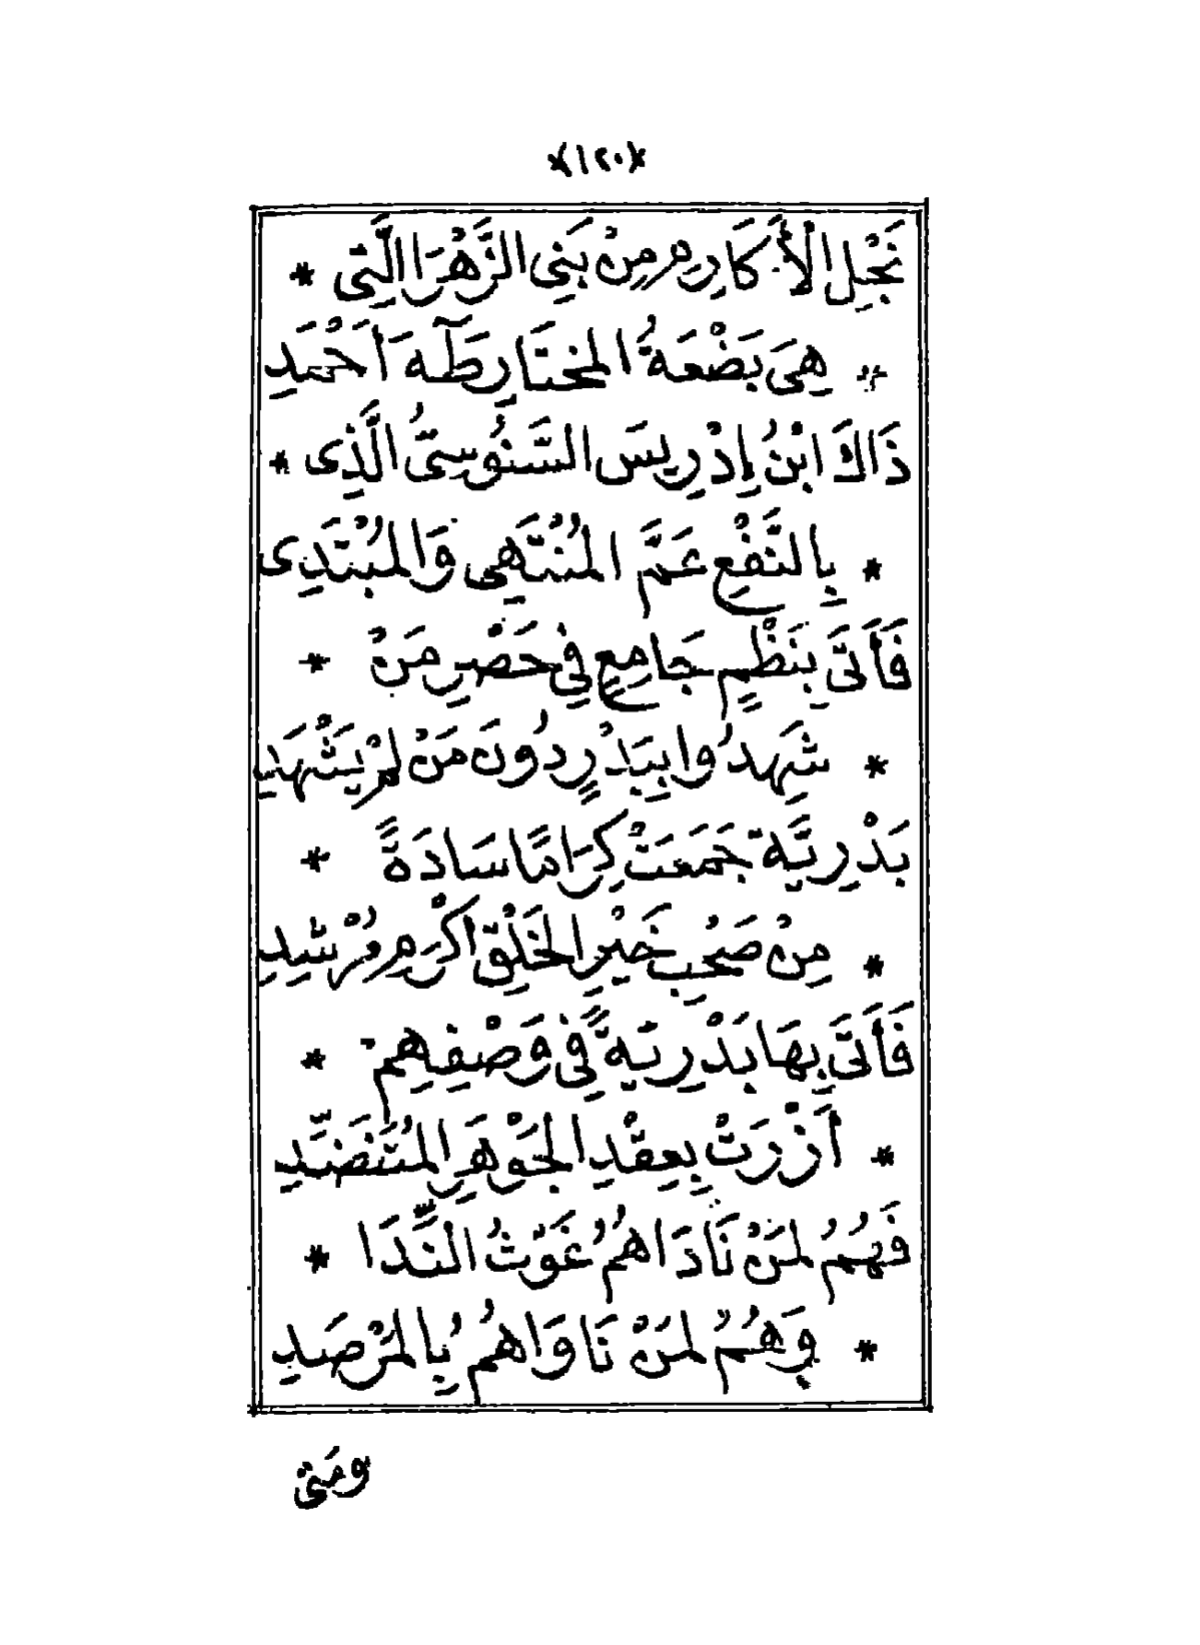 ﴿١٢٠﴾
نَجْلِ الْأَكَارِمِ مِنْ بَنِي الزَّهْرَا الَّتِي *
* هِيَ بَضْعَةُ المُخْتَارِ طَهَ أَحْمَدِ
ذَاكَ ابْنُ إِدْرِيسَ السَّنُوسِيُّ الَّذِى *
* بِالنَّفْعِ عَمَّ المُنْتَهِي وَالمُبْتَدِى
فَأَتَى بِنَظْمٍ جَامِعٍ فِي حَصْرِ مَنْ *
* شَهِدُوا بِبَدْرٍ دُونَ مَنْ لَمْ يَشْهَدِ
بَدْرِيَّة جَمَعَتْ كِرَامًا سَادَةً *
* مِنْ صَحْبِ خَيْرِ الخَلْقِ أَكْرَمِ مُرْشِدِ
فَأَتَى بِهَا بَدْرِيَّةً فِي وَصْفِهِمْ *
* أَزْرَتْ بِعِقْدِ الجَوْهَرِ المُتَنَضِّدِ
فَهُمُ لِمَنْ نَادَاهُمُ غَوْثُ النِّدَا *
* وَهُمُ لِمَنْ نَاوَاهُمُ بِالمَرْصَدِ
ومَتى